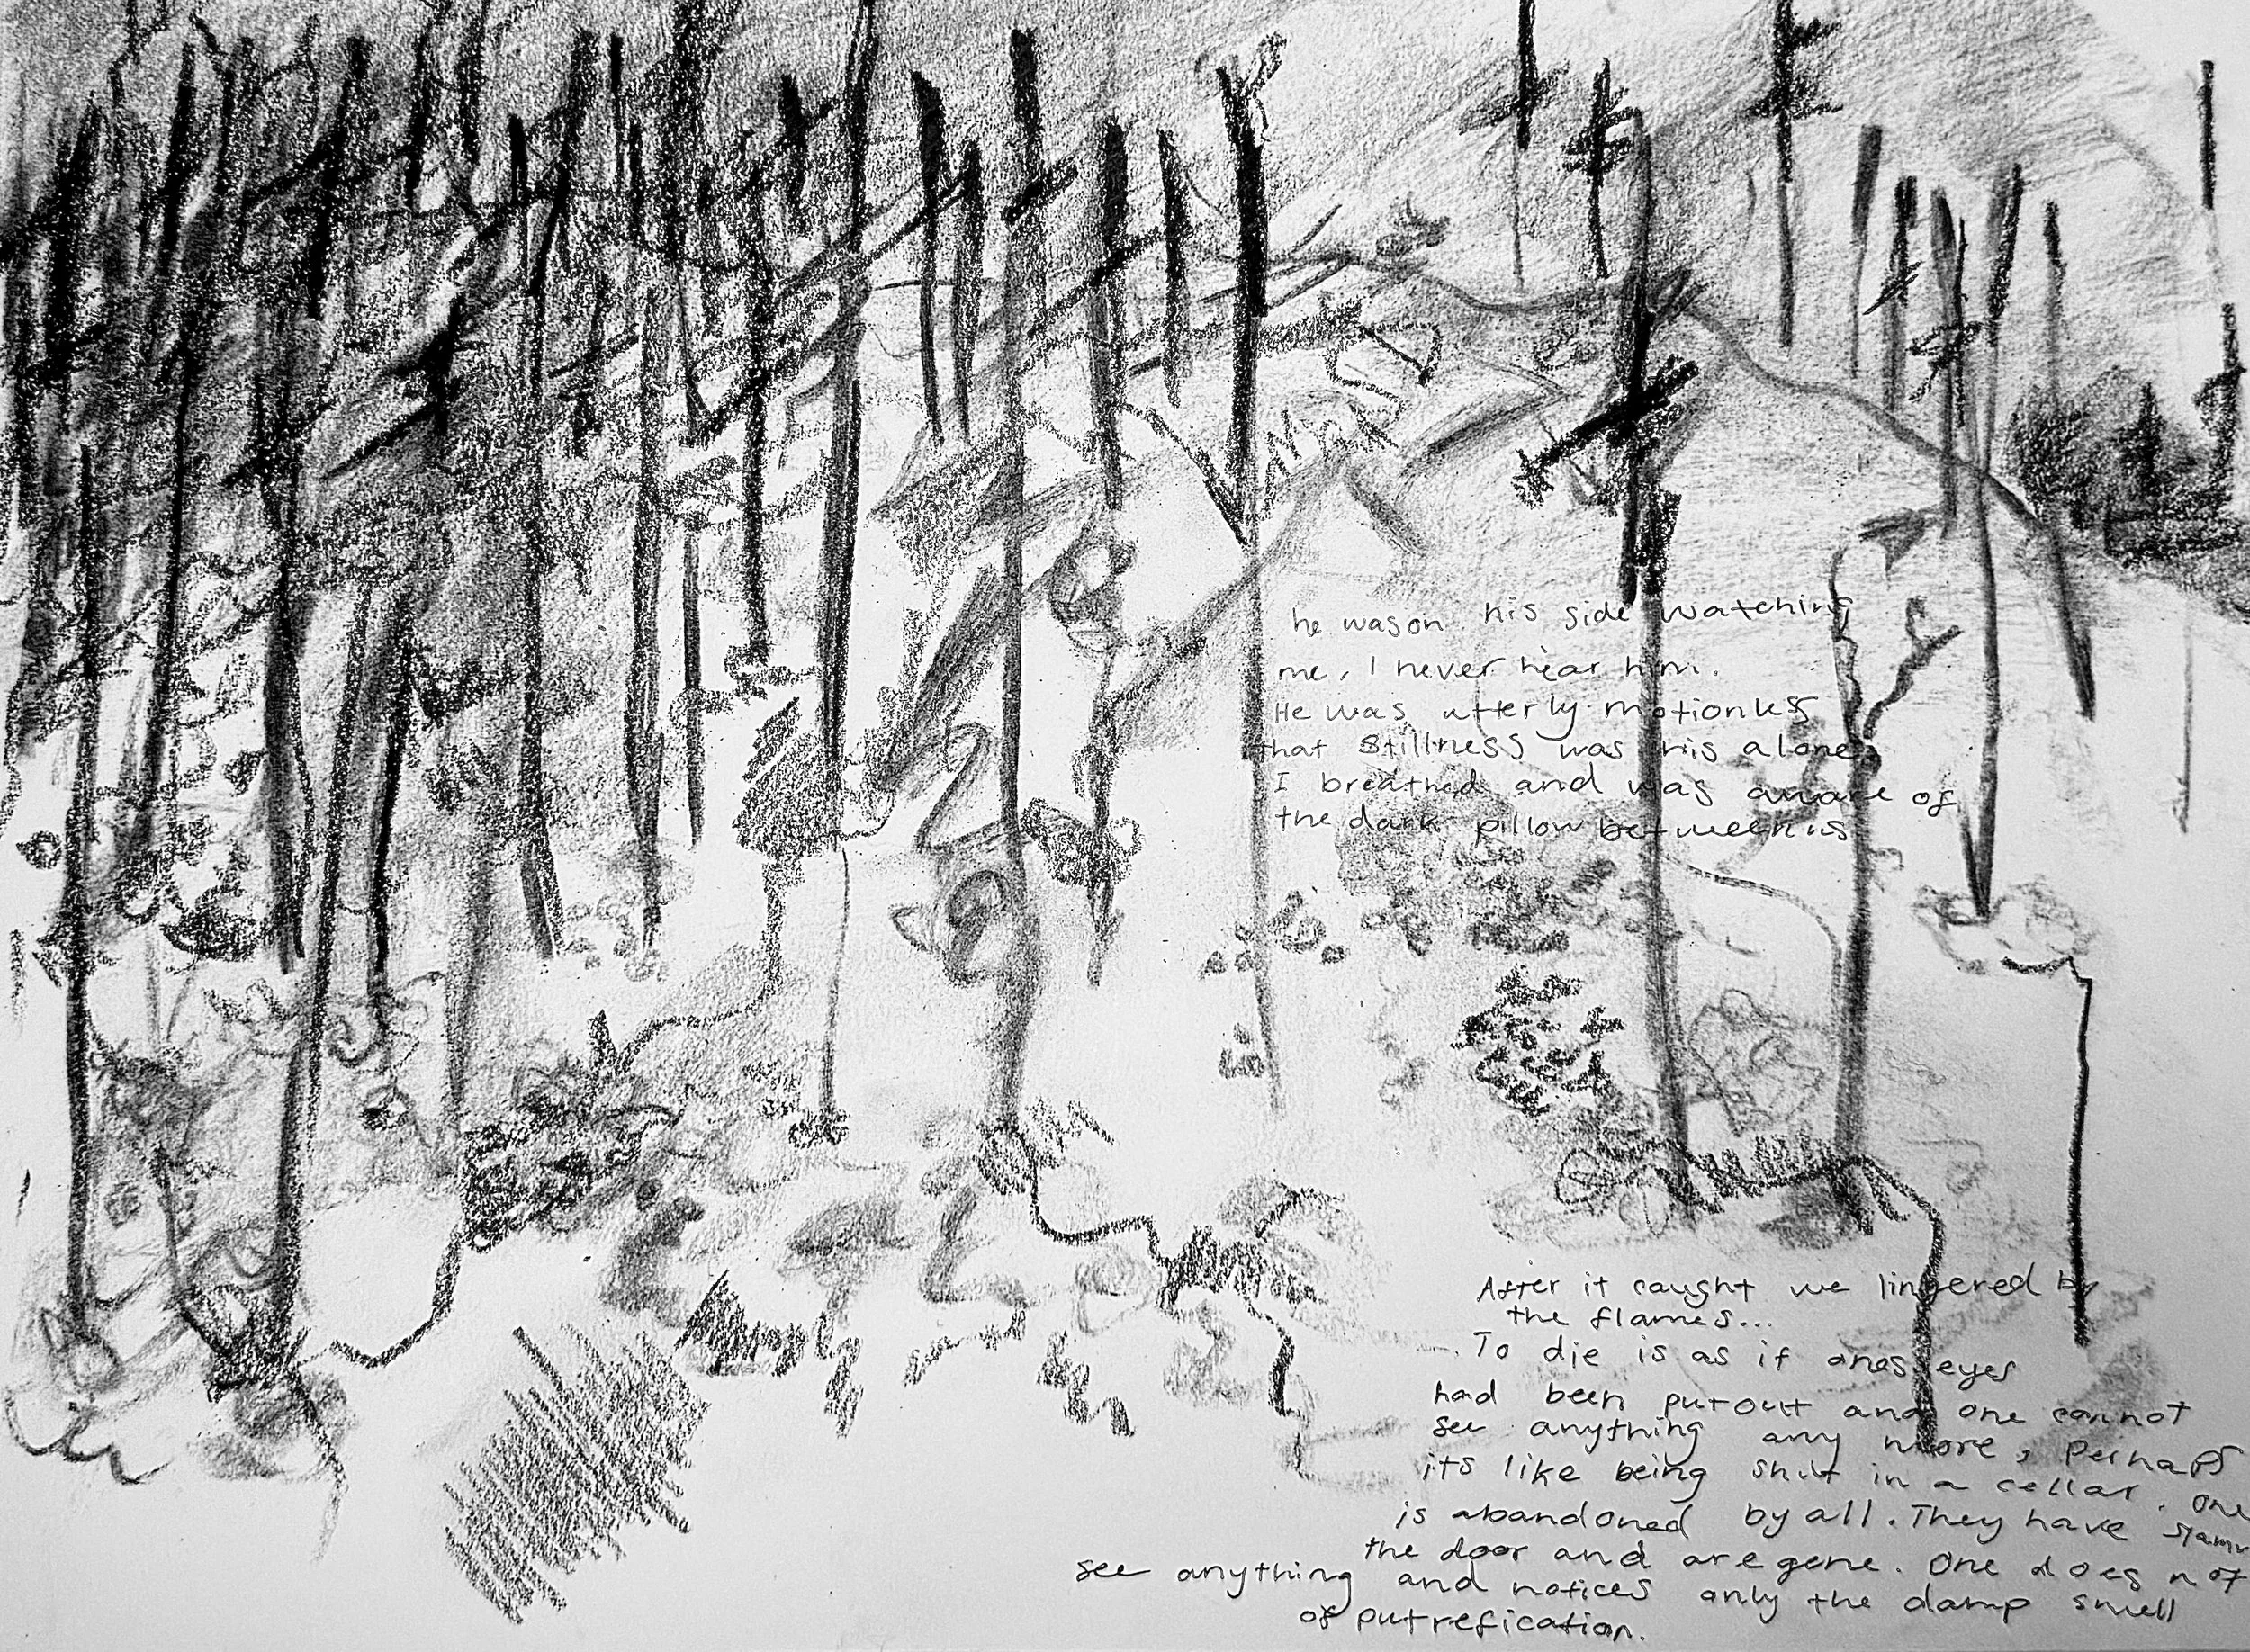 he was on his side watching
me, I never hear him.
He was utterly motionless
that stillness was his alone
I breathed and was aware of
the dark pillow between us
After it caught we lingered by
the flames...
To die is as if ones eyes
had been put out and one cannot
see anything any more, perhaps
its like being shut in a cellar. One
is abandoned by all. They have slamm
the door and are gone. One does not
see anything and notices only the damp smell
of putrefication.